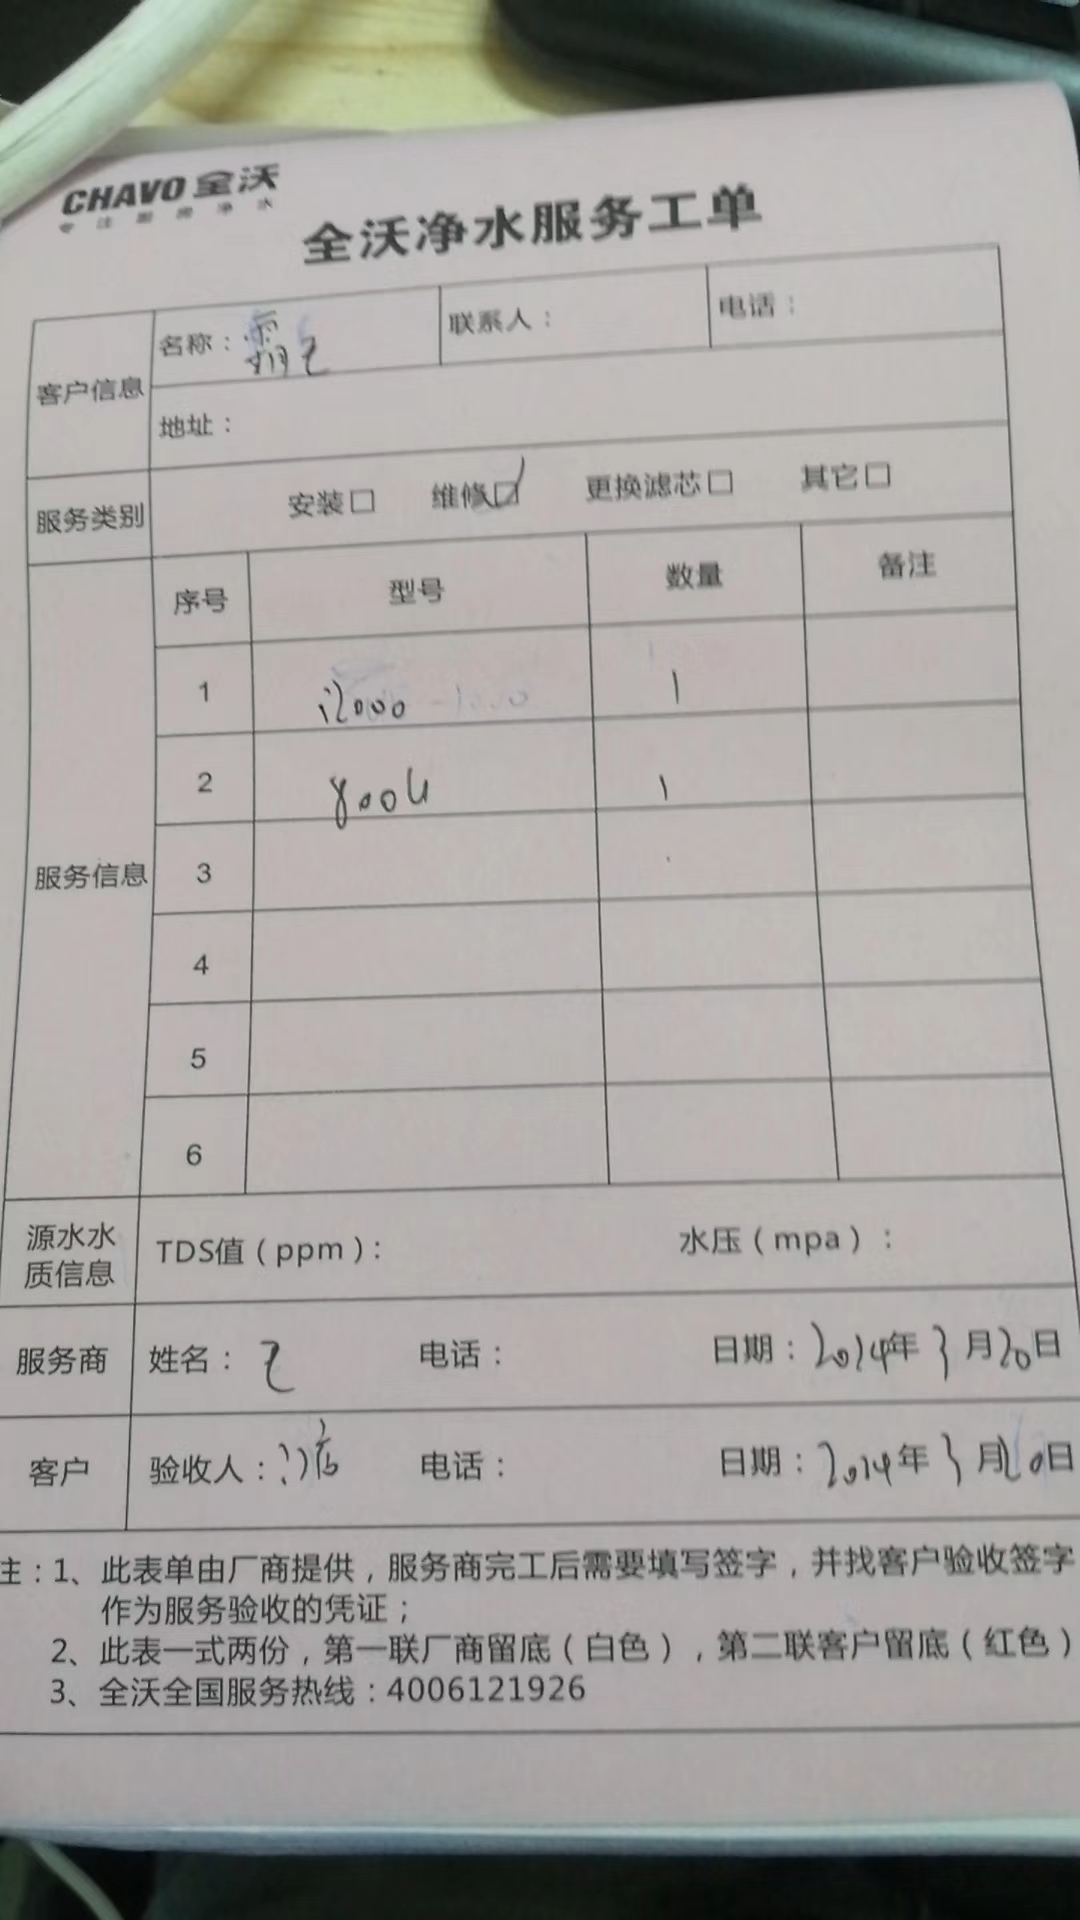 CHAVO 全沃
专注厨房净水
全沃净水服务工单
客户信息 名称：霸王 联系人： 电话：
地址：
服务类别 安装□ 维修☑ 更换滤芯□ 其它□
服务信息 序号 型号 数量 备注
1 i2000 1
2 8004 1
3
4
5
6
源水水质信息 TDS值（ppm）： 水压（mpa）：
服务商 姓名： 电话： 日期：2014年3月20日
客户 验收人： 电话： 日期：2014年3月20日
注：1、此表单由厂商提供，服务商完工后需要填写签字，并找客户验收签字
作为服务验收的凭证；
2、此表一式两份，第一联厂商留底（白色），第二联客户留底（红色）
3、全沃全国服务热线：4006121926